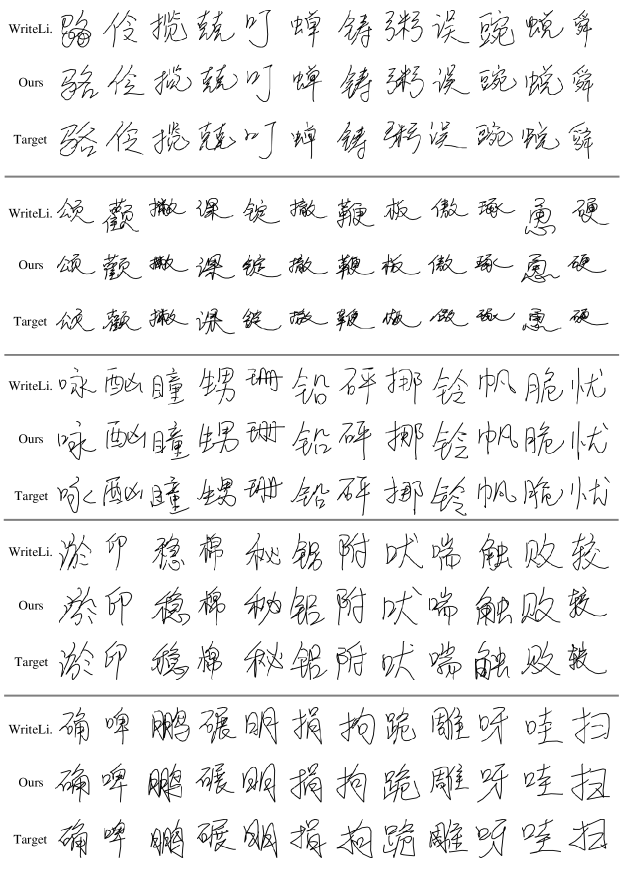 WriteLi. 骆 伶 揽 兢 叮 蝉 铸 粥 误 豌 蜕 舜
Ours 骆 伶 揽 兢 叮 蝉 铸 粥 误 豌 蜕 舜
Target 骆 伶 揽 兢 叮 蝉 铸 粥 误 豌 蜕 舜
WriteLi. 颂 颧 撇 课 锭 撤 鞭 板 傲 琢 恿 硬
Ours 颂 颧 撇 课 锭 撤 鞭 板 傲 琢 恿 硬
Target 颂 颧 撇 课 锭 撤 鞭 板 傲 琢 恿 硬
WriteLi. 咏 酗 瞳 甥 珊 铅 砰 挪 铃 帆 脆 忧
Ours 咏 酗 瞳 甥 珊 铅 砰 挪 铃 帆 脆 忧
Target 咏 酗 瞳 甥 珊 铅 砰 挪 铃 帆 脆 忧
WriteLi. 淤 卬 稳 棉 秘 铝 附 吠 喘 触 败 较
Ours 淤 卬 稳 棉 秘 铝 附 吠 喘 触 败 较
Target 淤 卬 稳 棉 秘 铝 附 吠 喘 触 败 较
WriteLi. 确 啤 鹏 碾 明 捐 拘 跪 雕 呀 哇 扫
Ours 确 啤 鹏 碾 明 捐 拘 跪 雕 呀 哇 扫
Target 确 啤 鹏 碾 明 捐 拘 跪 雕 呀 哇 扫